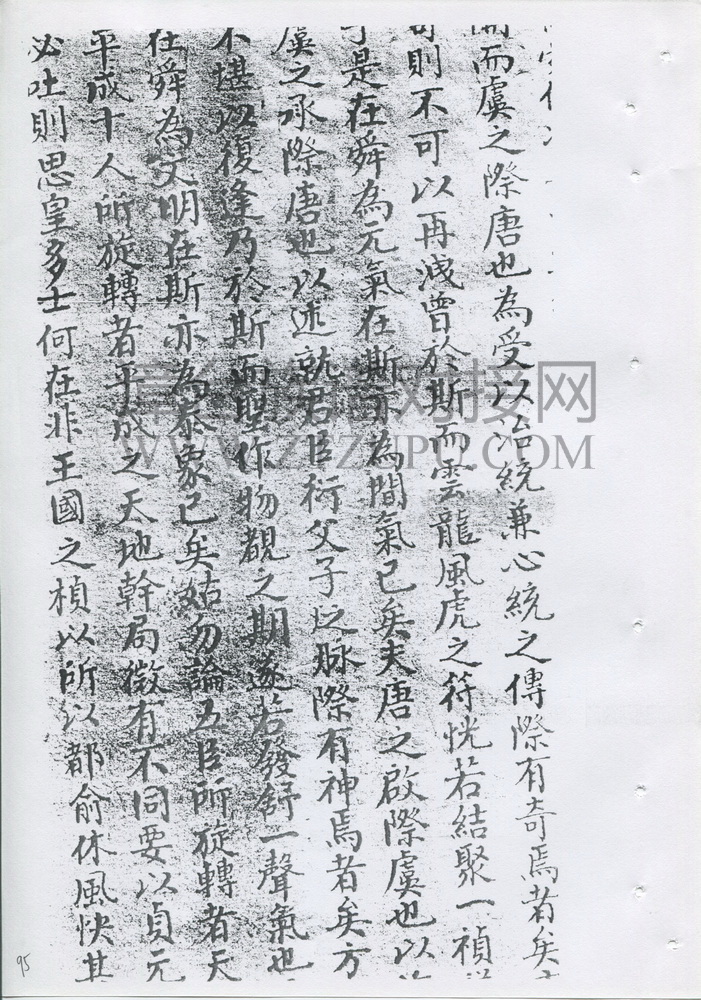 而虞之際唐也為受以治統兼心統之傳際有奇焉者矣
則不可以再溅曾於斯而雲龍風虎之符恍若結聚一禎
是在舜為元氣在斯亦為間氣已矣夫唐之啟際虞也以
虞之承際唐也以述就君臣衍父子之脉際有神焉者矣方
不堪以復逢乃於斯而聖作物覩之期遂若發舒一聲氣也
在舜為文明在斯亦為泰象已矣姑勿論五臣所旋轉者天
平成十人所旋轉者平成之天地幹局微有不同要以貞元
必吐則思皇多士何在非王國之楨以所以都俞休風快其
95
WWW.ZJZUPU.COM